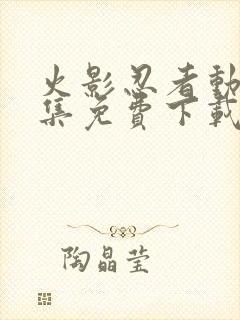 火影忍者動
集免費下載
陶晶莹